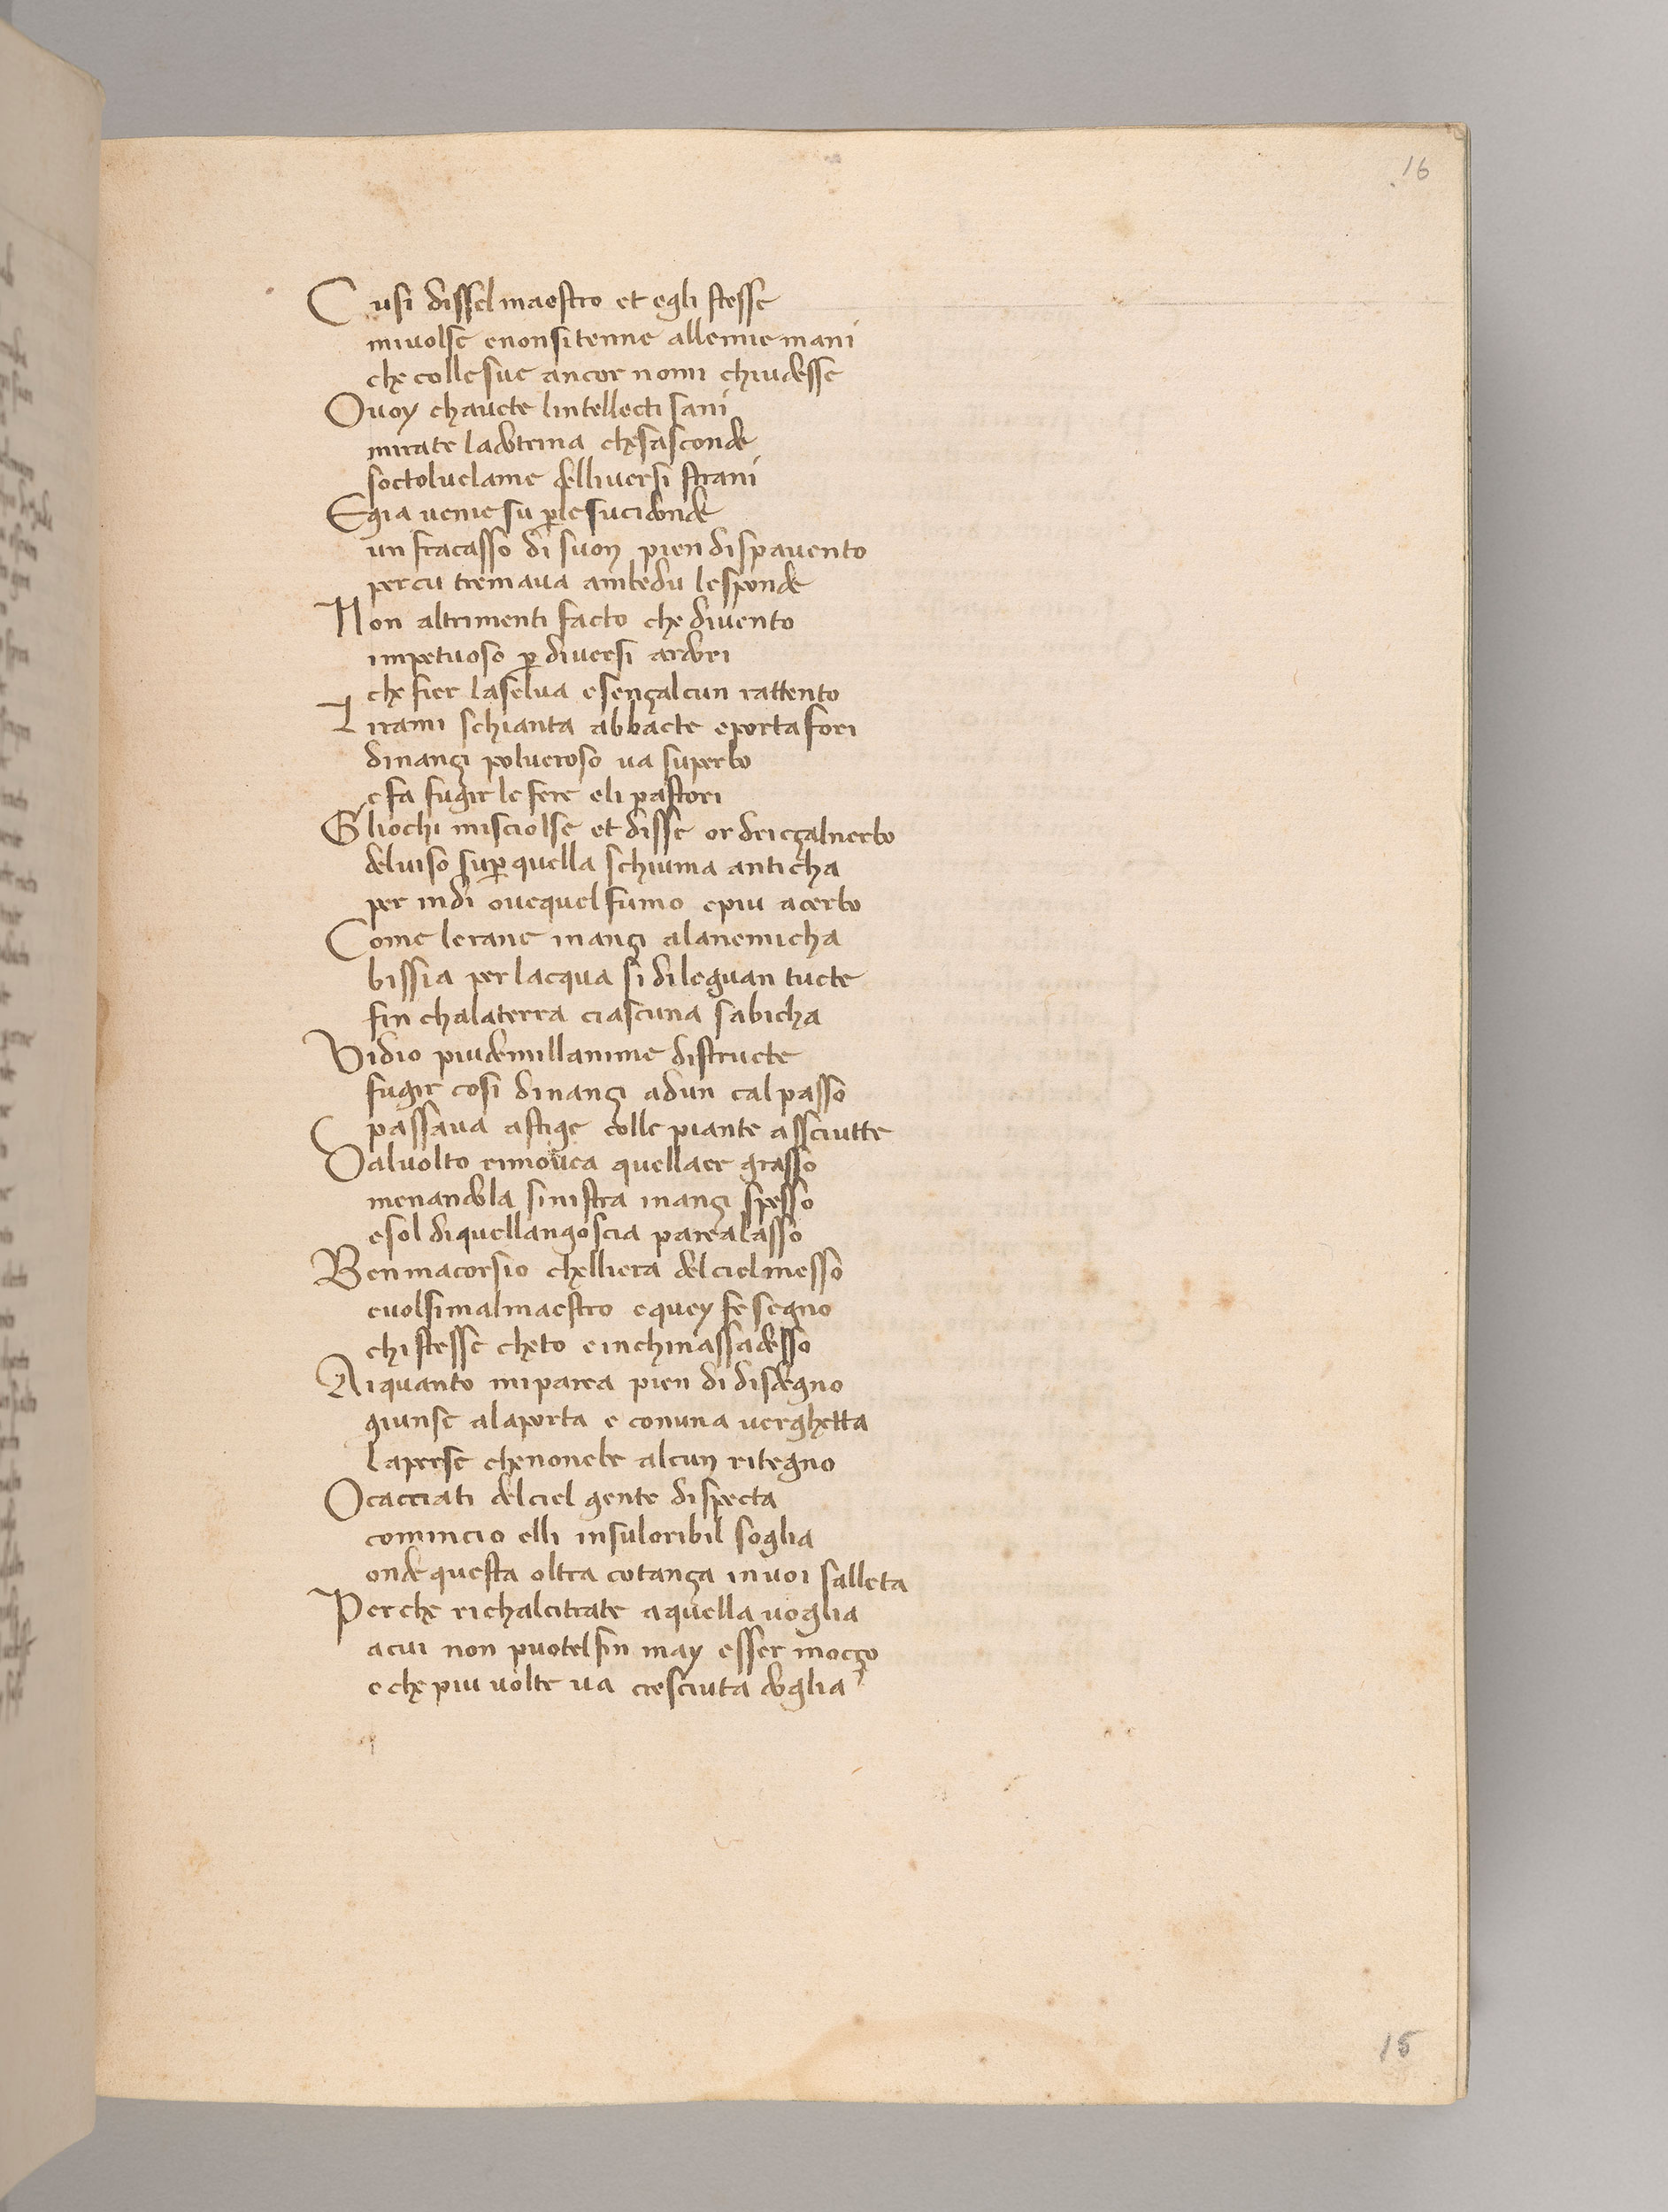 16
Cusi dissel maestro et egli stesse
mivolse enonsitenne allemie mani
che collesue ancor nomi chiudesse
Ovoy chavete lintellecti sani
mirate ladotrina chesasconde
soctoluelame delliversi strani
Egia venie su ꝑlesucidonde
un fracasso di suon pien dispavento
percu tremava ambedu lesponde
Non altrimenti facto che divento
impetuoso ꝑ diversi ardori
che fier laselva esençalcun rattento
Lirami schianta abbacte eportafori
dinançi polveroso va superbo
efa fugir le fere eli pastori
Gliochi misciolse et disse or drieçalnerbo
delviso suꝑ quella schiuma anticha
per indi ovequel fumo epiu acerbo
Come lerane inançi alanemicha
bissia per lacqua si dileguan tucte
fin chalaterra ciascuna sabicha
Vidio piudemillanime distructe
fugir cosi dinançi adun cal passo
passava astige colle piante assciutte
Dalvolto rimovea quellaer grasso
menandola sinistra inançi spesso
esol diquellangoscia parealasso
Benmacorsio chelliera delcielmesso
evolsimalmaestro equey fe segno
chistesse cheto einchinassadesso
Aiquanto miparea pien di disdegno
giunse alaporta e conuna verghetta
laperse chenonebe alcun ritegno
Ocacciati delciel gente dispecta
comincio elli insuloribil soglia
onde questa oltra cotança invoi salleta
Perche richalcitrate aquella voglia
acui non puotelfin may esser moçço
e che piu volte va cresciuta doglia
15